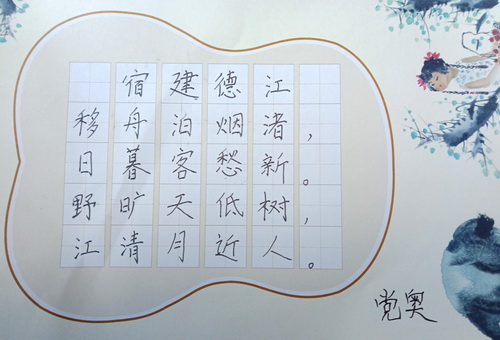 宿建德江
移舟泊烟渚，
日暮客愁新。
野旷天低树，
江清月近人。
党奥